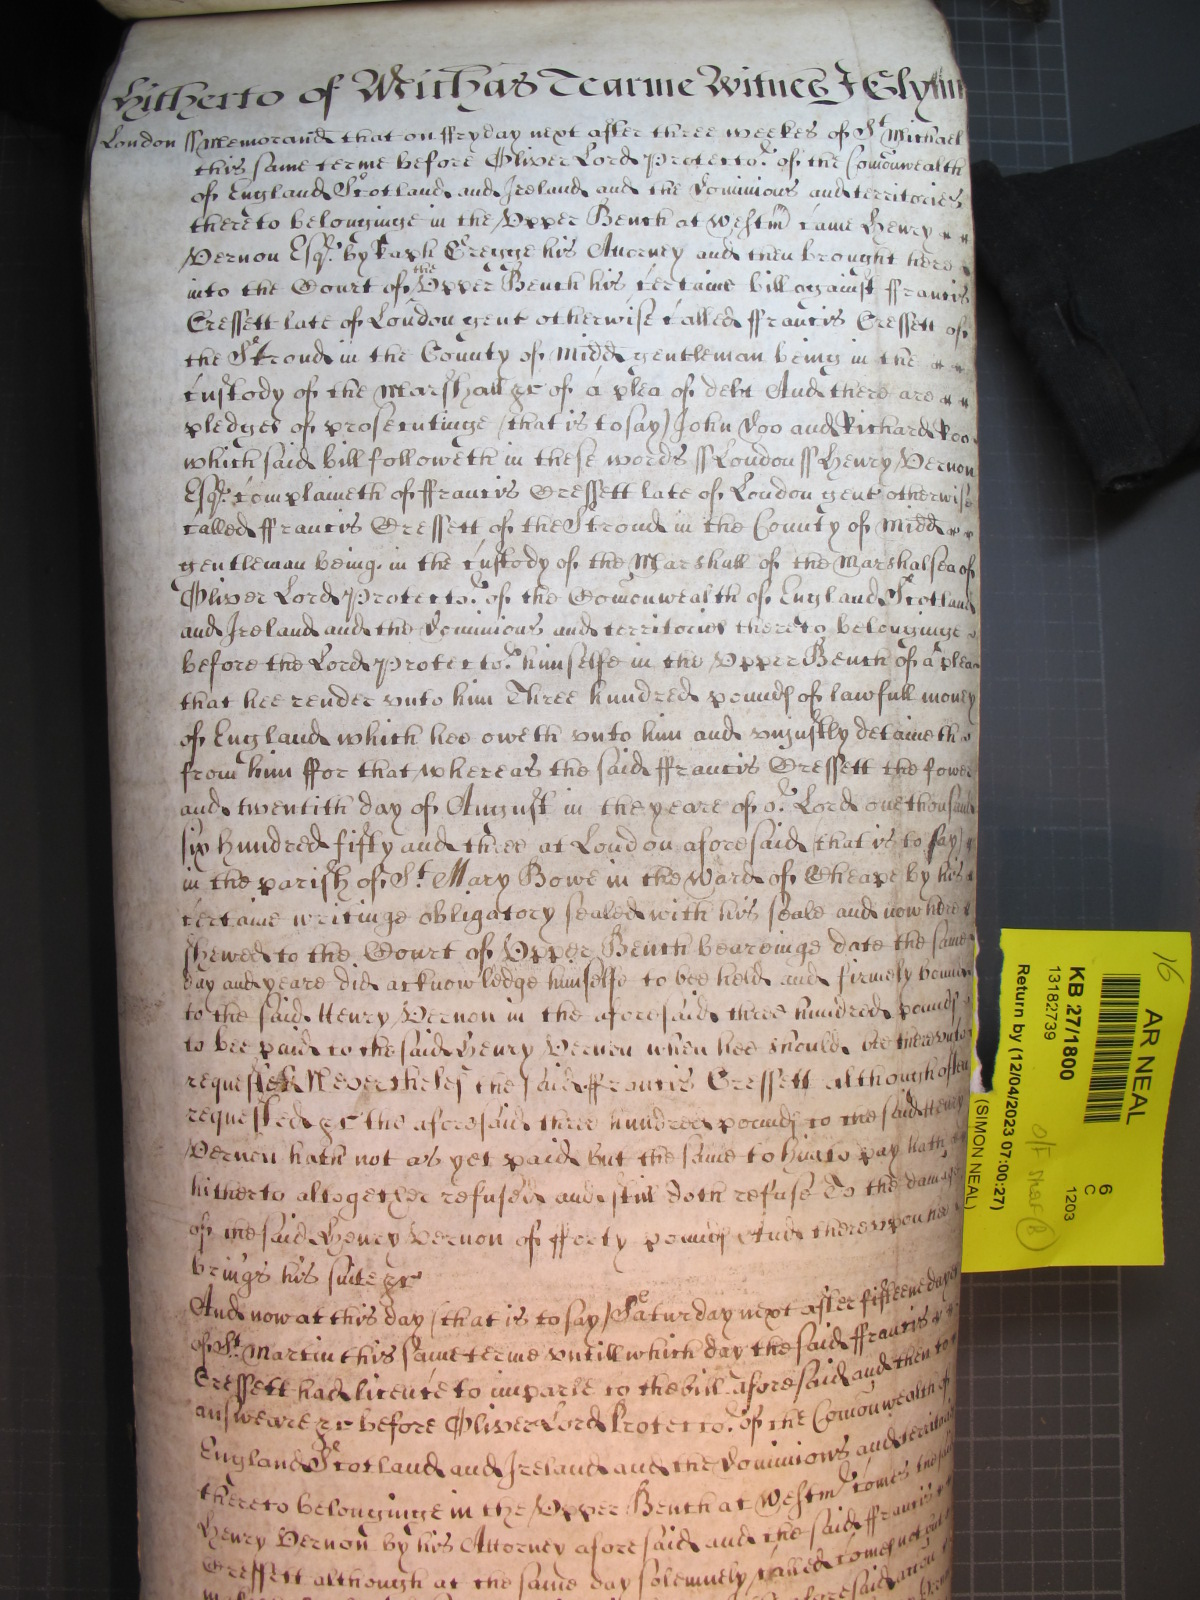 hitherto of Michas Tearme Witnes J Glynn
London ss Memorand that on ffryday next after three weekes of St Michael
this same terme before Oliver Lord Protector of the Comonwealth
of England Scotland and Ireland and the Dominions and territories
thereto belonginge in the Upper Bench at Westmr came Henry
Vernon Esqr by Raph Gregge his Attorney and then brought here
into the Court of the Upper Bench his certaine bill against ffrancis
Gressett late of London gent otherwise called ffrancis Gressett of
the Strond in the County of Midd gentleman being in the
custody of the Marshall &c of a plea of debt And there are
pledges of prosecutinge (that is to say) John Doo and Richard Roo
which said bill followeth in these words ss London ss Henry Vernon
Esqr complaineth of ffrancis Gressett late of London gent otherwise
called ffrancis Gressett of the Strond in the County of Midd
gentleman being in the custody of the Marshall of the Marshalsea of
Oliver Lord Protector of the Comonwealth of England Scotland
and Ireland and the Dominions and territories thereto belonginge
before the Lord Protector himselfe in the Upper Bench of a plea
that hee render unto him Three hundred pounds of lawfull money
of England which hee oweth unto him and uniustly detaineth
from him ffor that whereas the said ffrancis Gressett the fower
and twentith day of August in the yeare of or Lord one thousand
six hundred fifty and three at London aforesaid (that is to say)
in the parish of St Mary Bowe in the Ward of Cheape by his
certaine writinge obligatory sealed with his seale and now here
shewed to the Court of Upper Bench beareinge date the same
day and yeare did acknowledge himselfe to bee held and firmely bound
to the said Henry Vernon in the aforesaid three hundred pounds
to bee paid to the said Henry Vernon when hee should bee thereunto
requested Neverthelesse the said ffrancis Gressett although often
requested &c the aforesaid three hundred pounds to the said Henry
Vernon hath not as yet paid but the same to him to pay hath
hitherto altogether refused and still doth refuse To the damage
of the said Henry Vernon of fforty pounds And thereupon hee
brings his suite &c
And now at this day (that is to say) Saturday next after fifteene dayes
of St Martin this same terme untill which day the said ffrancis
Gressett had licence to imparle to the bill aforesaid and then to
answeare &c before Oliver Lord Protector of the Comonwealth of
England Scotland and Ireland and the Dominions and territories
thereto belonginge in the Upper Bench at Westmr comes the said
Henry Vernon by his Attorney aforesaid and the said ffrancis
Gressett although at the same day solemnely called comes not
aforesaid
AR NEAL
16
6
C
1203
KB 27/1800
13182739
Return by (12/04/2023 07:00:27)
(SIMON NEAL)